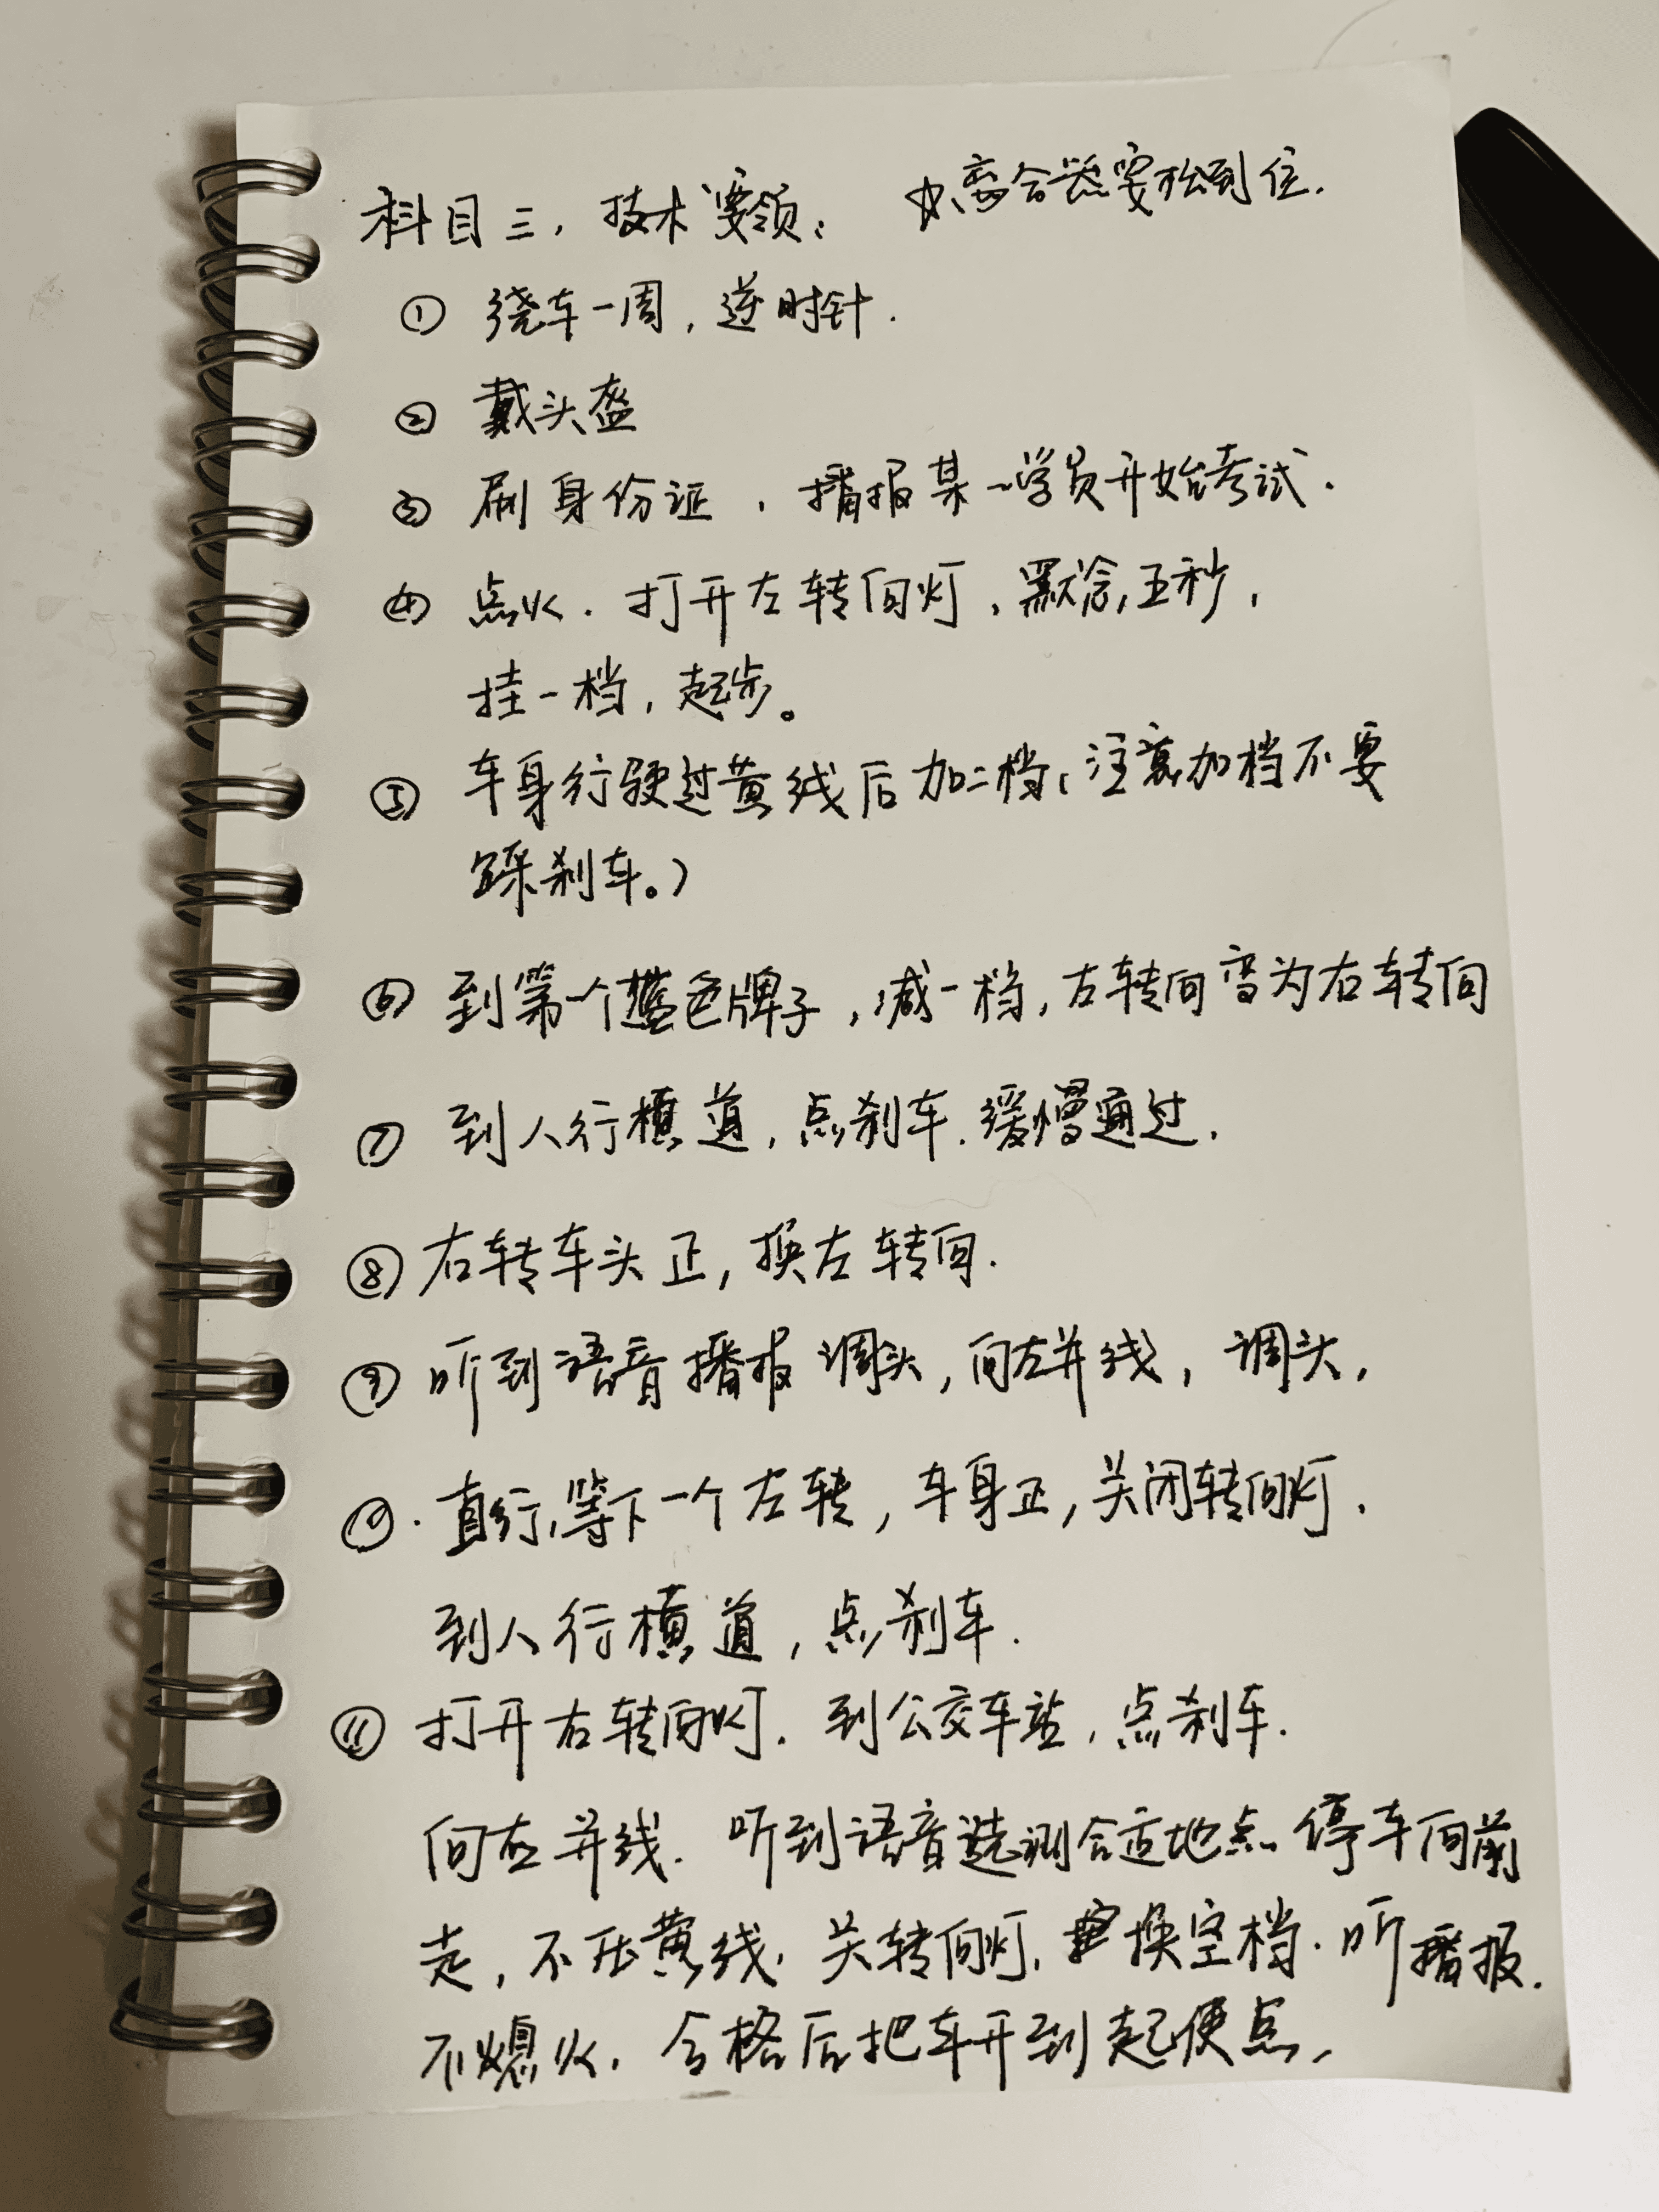 科目三，技术要领：
☆离合器要松到位.
① 绕车一周，逆时针.
② 戴头盔
③ 刷身份证，播报某一学员开始考试.
④ 点火. 打开左转向灯，默念，五秒，
挂一档，起步。
⑤ 车身行驶过黄线后加二档（注意加档不要
踩刹车。）
⑥ 到第一个蓝色牌子，减一档，左转向变为右转向
⑦ 到人行横道，点刹车. 缓慢通过.
⑧ 右转车头正，换左转向.
⑨ 听到语音播报调头，向左并线，调头，
⑩. 直行，等下一个左转，车身正，关闭转向灯.
到人行横道，点刹车.
⑪ 打开右转向灯. 到公交车站，点刹车.
向右并线. 听到语音选测合适地点停车向前
走，不压黄线. 关转向灯，换空档. 听播报.
不熄火. 合格后把车开到起使点，